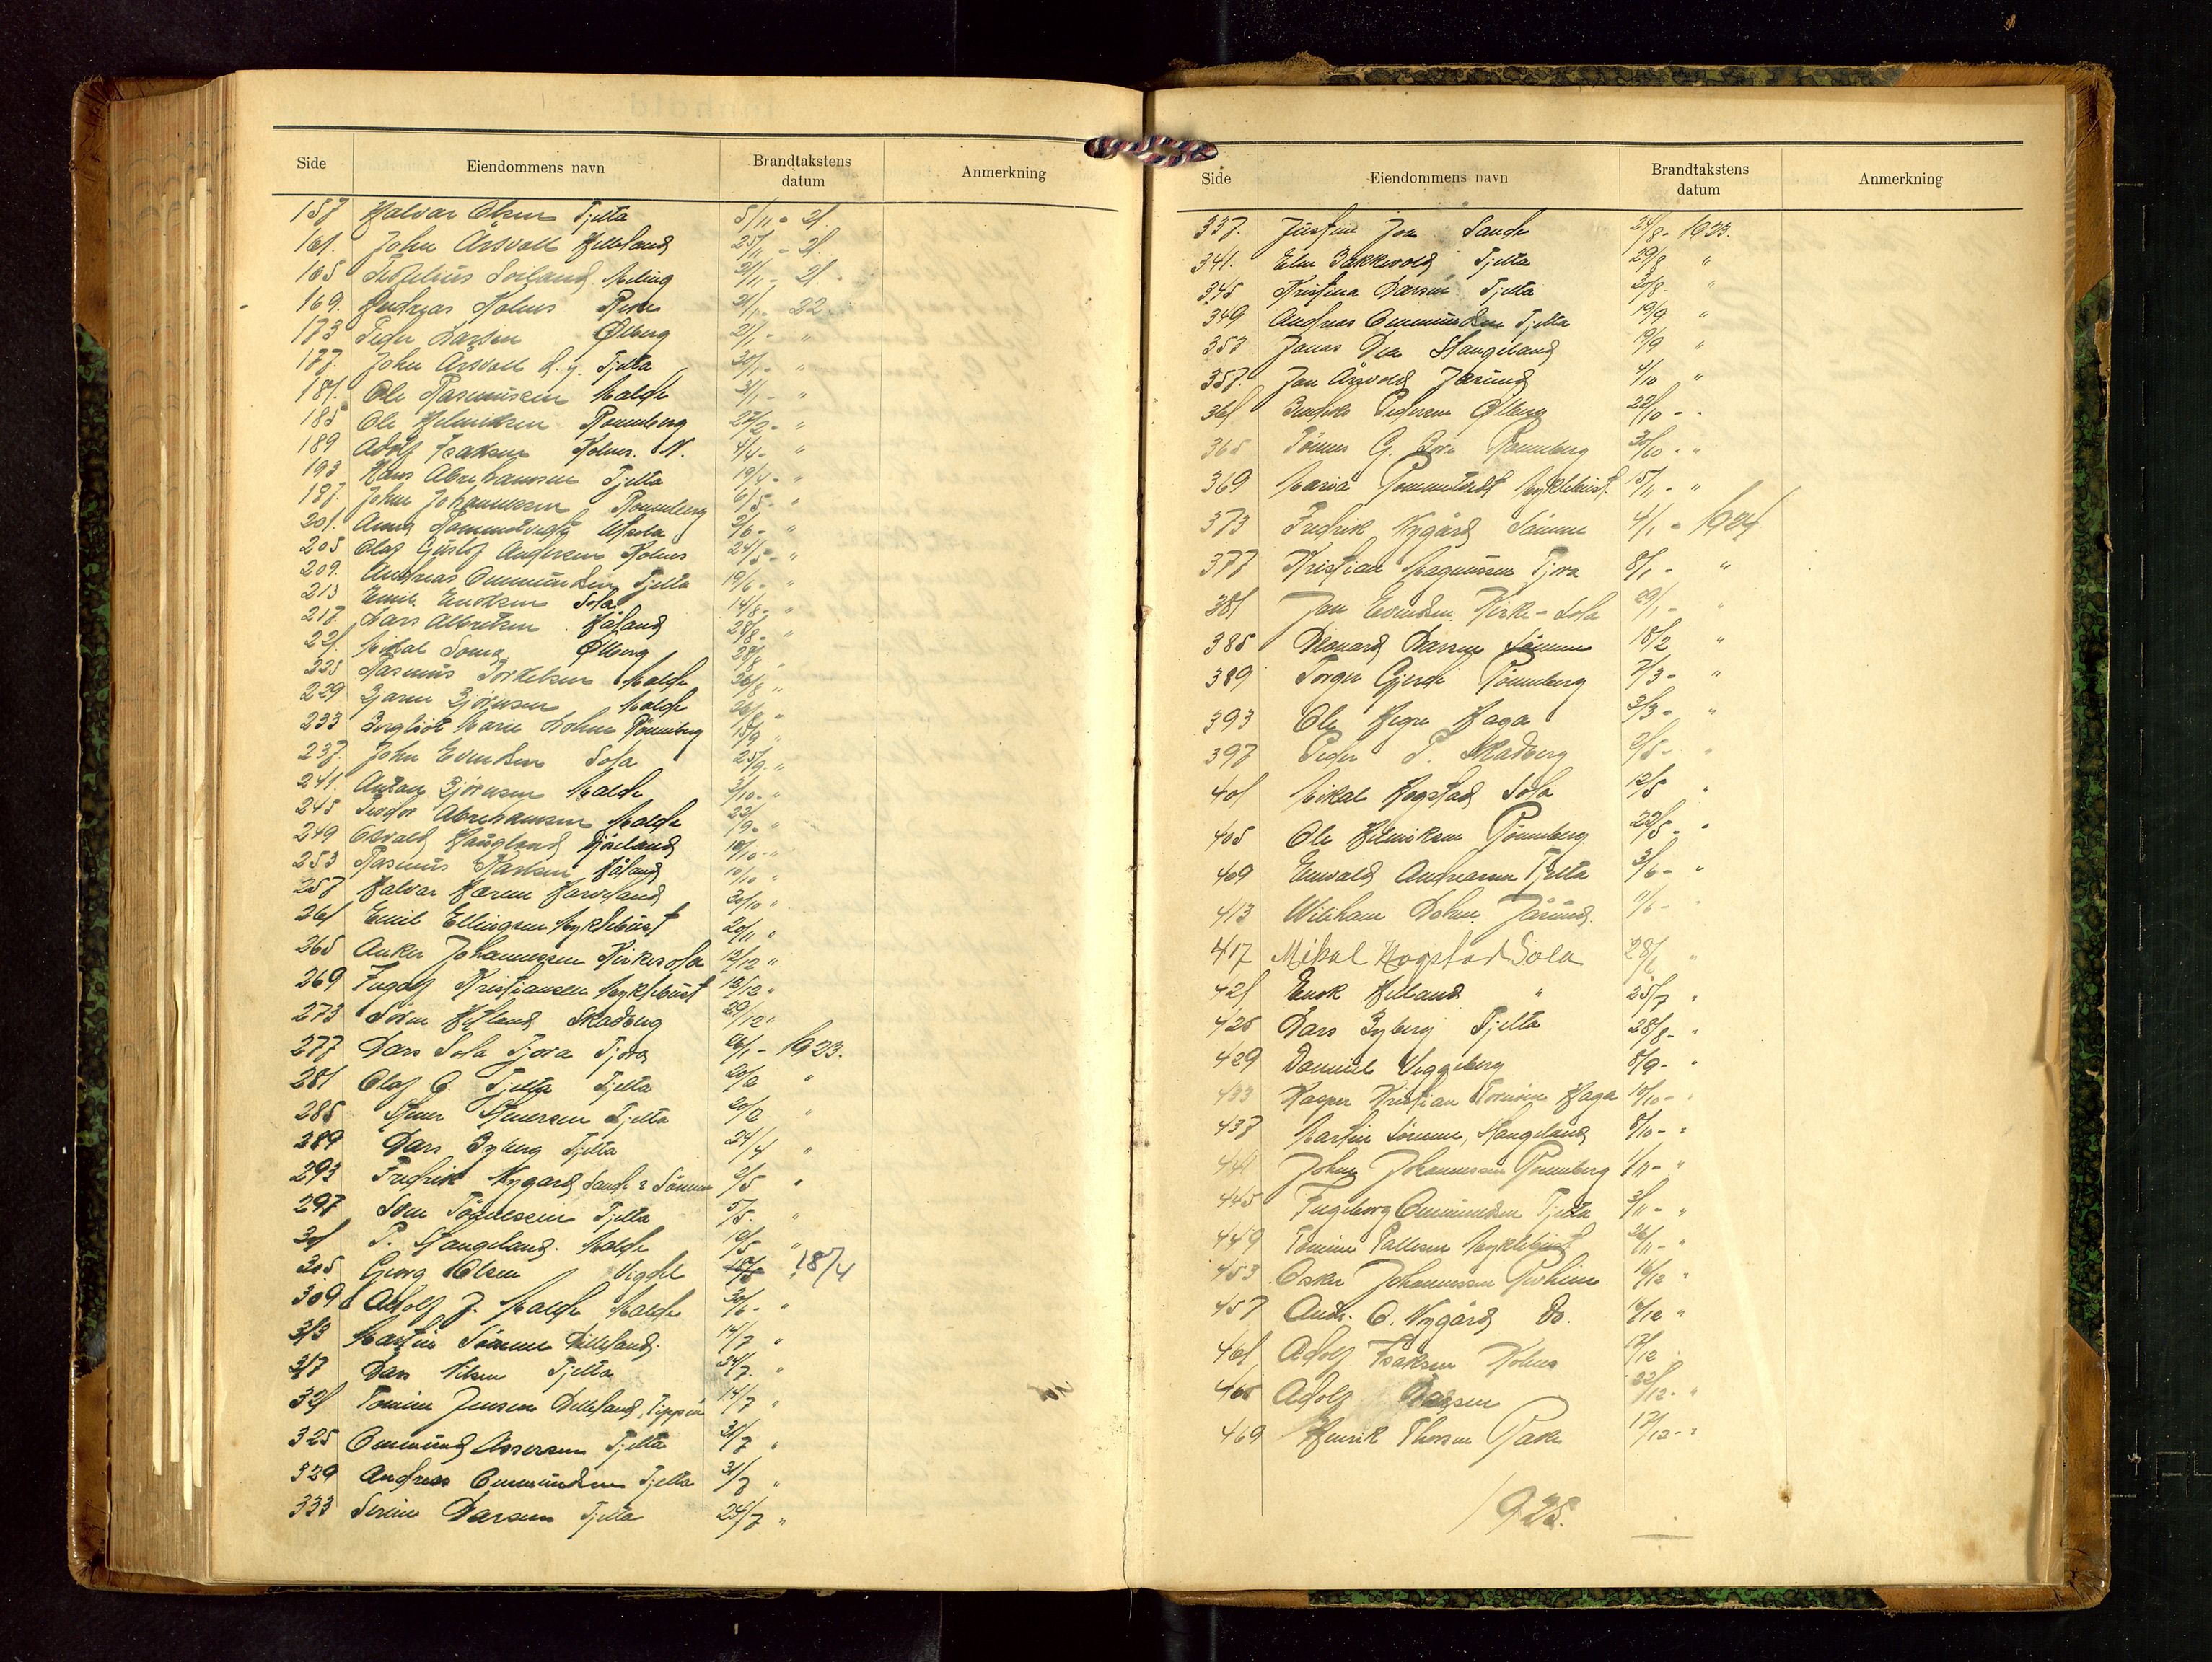 Side Eiendommens navn Brandtakstens datum Anmerkning
157 Halvar Olsen Tjelta 5/11 - 21.
161. John Årsvoll Hilleland 25/11 - 21.
165 Soiland Meling 21/11 - 21.
169. Andreas Holmes Ræge 21/1 - 22.
173 Peder Larsen Ølberg 21/1 - "
177. John Årsvoll d. y. Tjelta 30/1 - "
181. Ole Rasmussen Malde 31/1 - "
185 Ole Helmiksen Rømmeberg 27/2 - "
189 Adolf Isaksen Holmes. N. 4/4 - "
193 Hans Abrahamsen Tjelta 19/4 - "
197. John Johannessen Rønneberg 6/5 - "
201. Anna Utsola 2/6 - "
205 Olaf Gustof Andersen Holmes 24/5 - "
209. Andreas Ommundsen Tjelta 19/6 - "
213 Emil Enoksen Sola 14/8 - "
217. Lars Albretsen Håland 28/8 - "
221. Mikal Soma Ølberg 28/8 "
225 Rasmus Torkelsen Malde 26/8 "
229 Bjarne Bjørnsen Malde 26/8 "
233 Bergliot Marie Dohm Rønneberg 15/9 "
237. John Evendsen Sola 25/9 - "
241. Anton Bjørnsen Malde 3/10 - "
245 Teodor Abrahamsen Malde 22/9 - "
249 Osvald Haugland Gjøsiland 10/10 - "
253 Rasmus Karlsen Håland 10/10 "
257 Halvar Harveland 30/10 "
261 Emil Ellingsen Myklebust 20/11 "
265 Anker Johannessen Kirkesola 12/12 "
269 Ingolf Kristiansen Myklebust 12/12 "
273 Søren Helland Skadberg 29/12 "
277 Lars Sola Tjora Tjora 26/1 - 1923.
281 Olaf O. Tjelta Tjelta 20/2 "
285 Stener Stenersen Tjelta 20/2 "
289 Lars Byberg Tjelta 24/4 "
293 Fredrik Nygård Sande & Sømme 2/5 "
297 Sven Tønnessen Tjelta 5/5. "
301 P. Stangeland. Malde 19/5 "
305. Georg Olsen Vigdel " 18/4
309 Adolf J. Malde Malde 30/6 - "
313 Martin Sømme Dilleland. 14/7 "
317 Lars Nilsen Tjelta 24/7. "
321 Tomine Jensen Dilleland, 14/7 "
325 Ommund Assersen Tjelta 31/7 "
329 Andreas Ommundsen Tjelta 31/7 "
333 Serine Larsen Tjelta 24/7 "
Side Eiendommens navn Brandtakstens datum Anmerkning
337. Justine Joa Sande 24/8 - 1923.
341. Elen Bakkevold Tjelta 29/8 "
345 Kristina Larsen Tjelta 30/8. "
349 Andreas Ommundsen Tjelta 19/9 "
353 Jonas Stangeland 19/9 "
357. Jon Årsvold Jåsund 4/10 "
361 Pedersen Ølberg 22/10 - "
365 Tønnes G. Rønneberg 30/10 - "
369 Maria Rommetvedt Myklebust. 15/11 - "
373 Fredrik Nygård Sømme 4/1 - 1924
377 Kristian Magnussen Tjora 8/1 - "
381 Jon Evendsen Kirke-Sola 29/1 - "
385 Leonard Larsen Sømme 18/2 "
389 Torger Gjerde Rønneberg 7/3 - "
393 Ole Hegre Haga 3/3 - "
397 Peder P. Skadberg 2/5 - "
401 Mikal Hogstad Sola 12/5 "
405 Ole Helmiksen Rønneberg. 22/5 - "
409 Enevald Andreassen Tjelta 3/6 - "
413 Wilhem Dohm Jåsund. 11/6 - "
417 Mikal Hogstad Sola 28/6 "
421 Enok Helland " 25/7 "
425 Lars Byberg Tjelta 28/8 - "
429 Daniel Viggeberg 8/9 - "
433 Kasper Kristian Haga 10/10 - "
437 Martin Sømme, Stangeland 8/10 - "
441 John Johannessen Rønneberg 1/11 - "
445 Ingeborg Ommundsen Tjelta 3/11 - "
449 Tomine Pallesen Myklebust 26/11 - "
453 Oskar Johannessen Risheim 16/12 "
457 Andr. O. Nygård Do. 16/12 "
461 Adolf Isaksen Holmes 17/12
465 Adolf 22/12 - "
469 Henrik Thorsen Ræge 17/12 - "
1925.